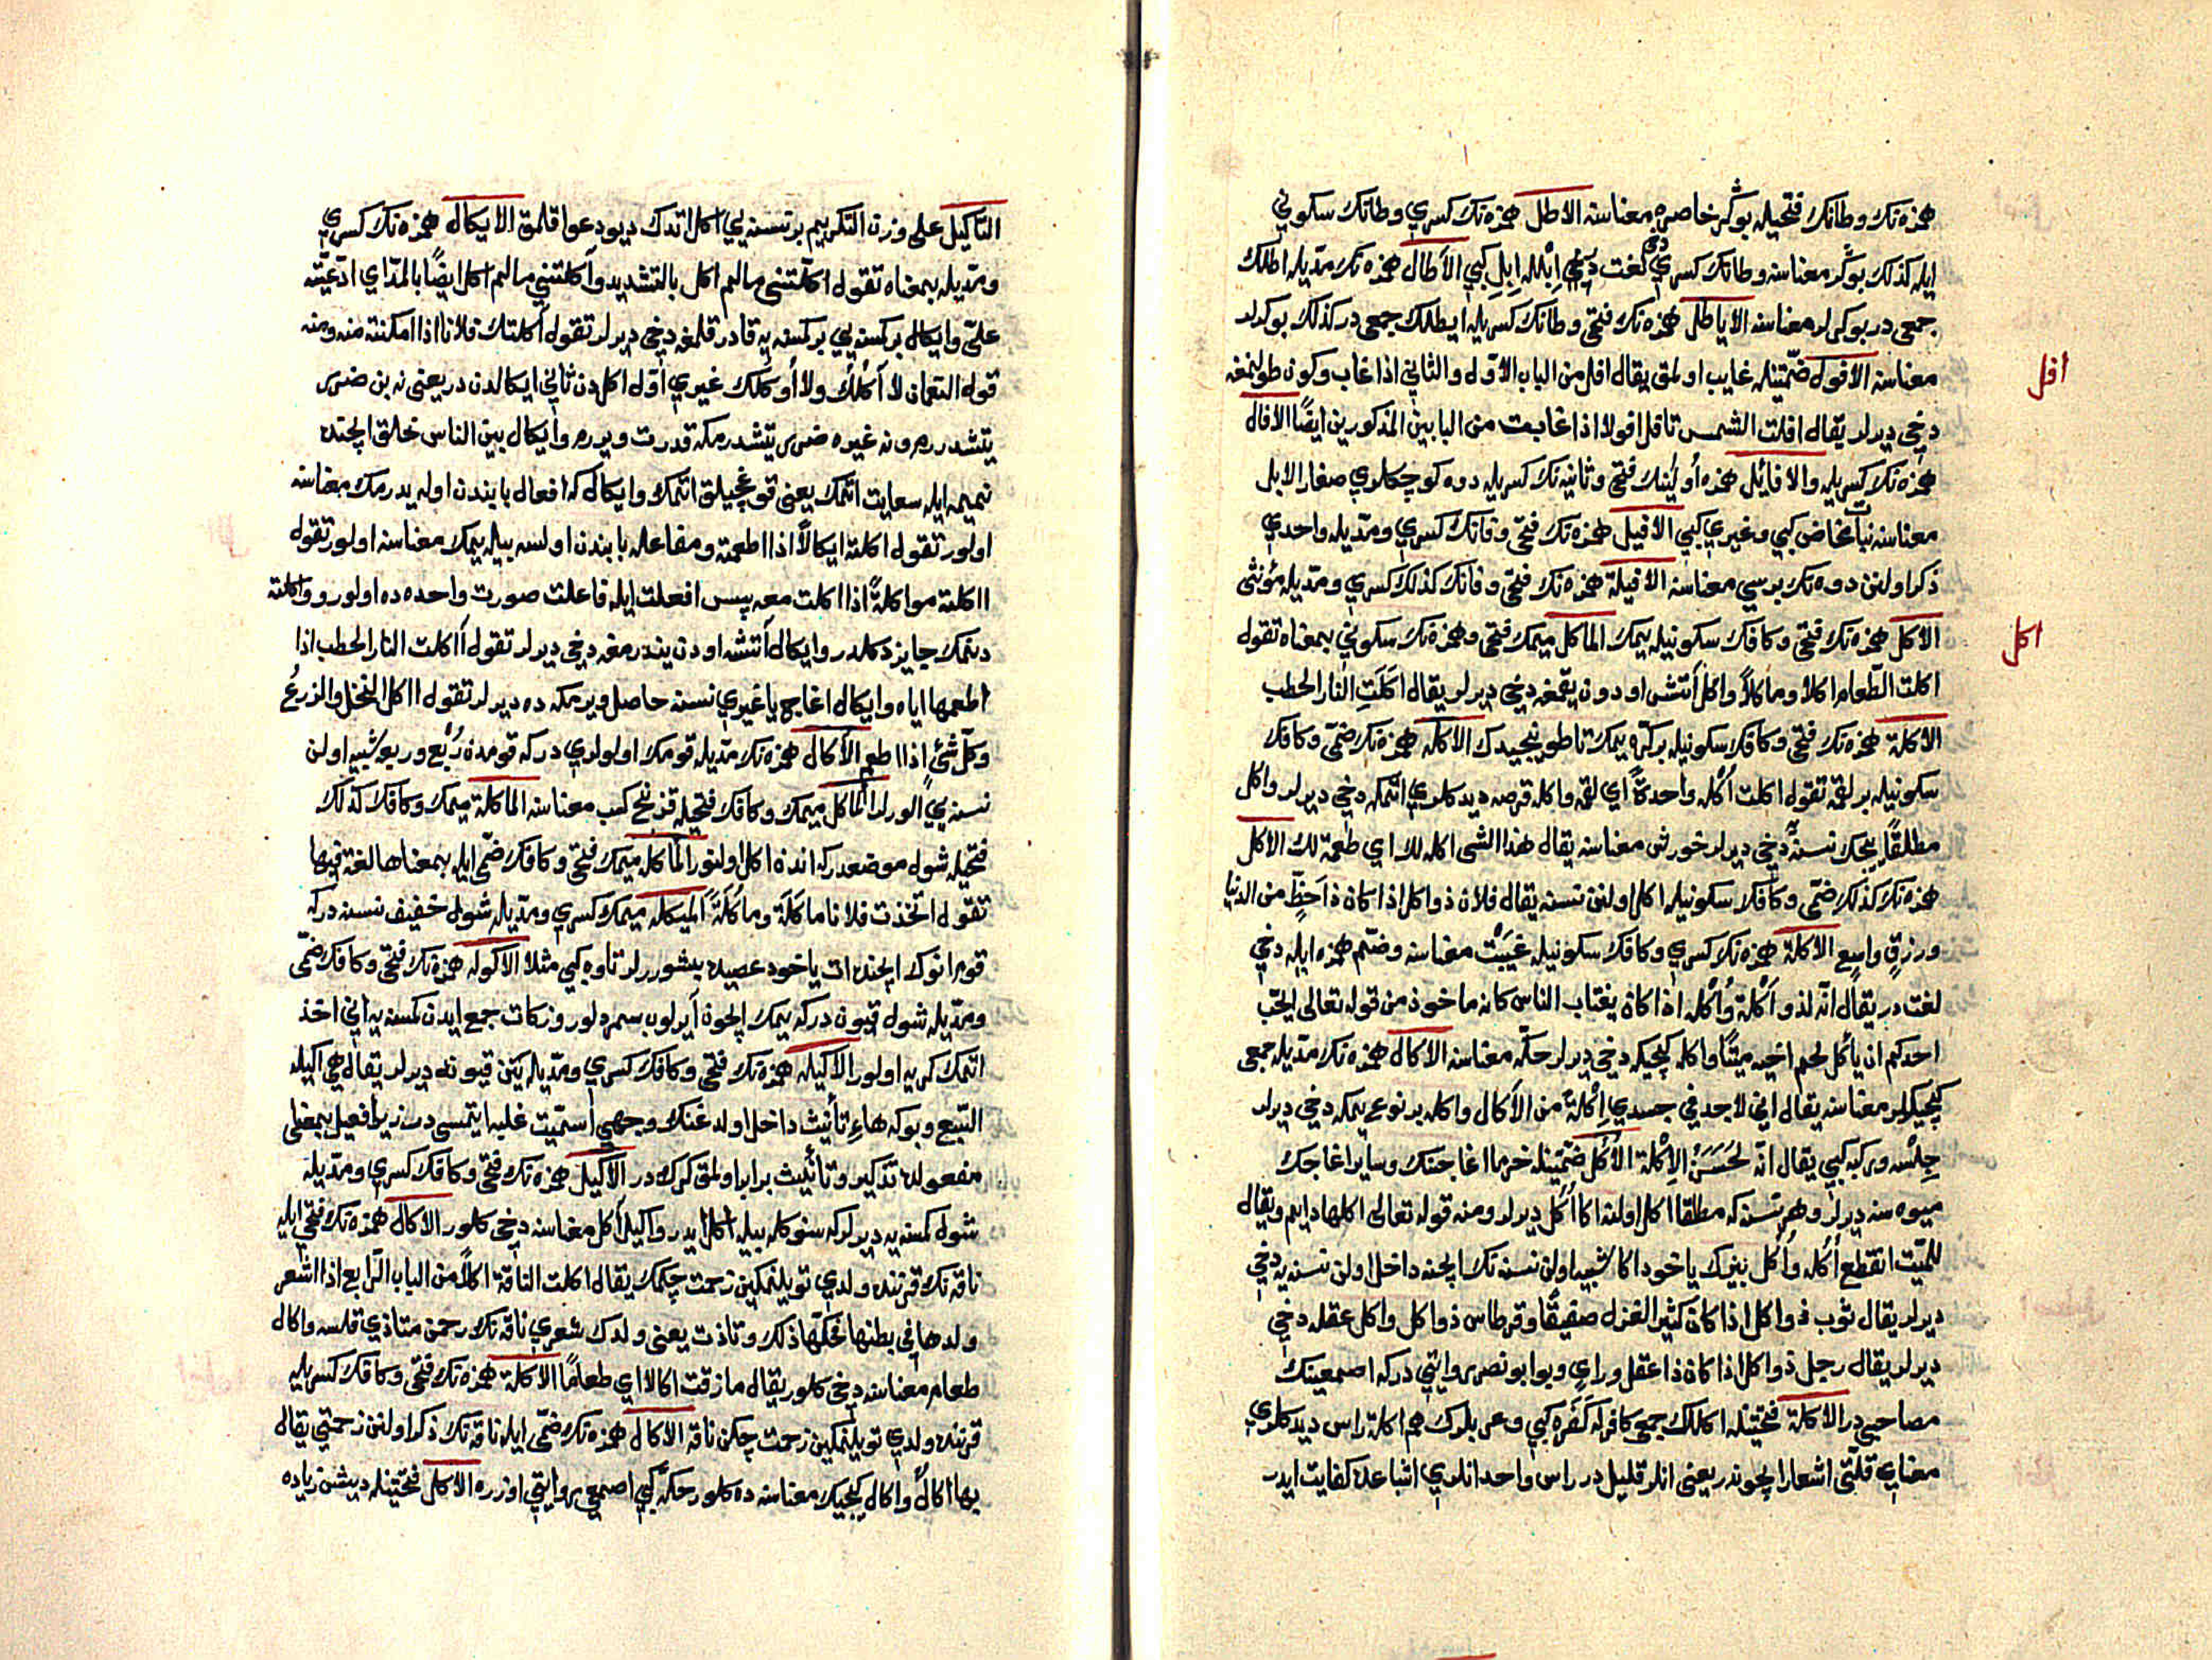 همزه‌نك وطانك فتحيله بوكر خاصره معناسنه الاطل همزه‌نك كسري وطانك سكوني
ايله كذلك بوكر معناسنه وطانك كسري دخي لغت در ابل كبي الآطال همزه‌نك مديله اطلك
جمعى در بوكرلر معناسنه الاياطل همزه‌نك فتحى وطانك كسريله ايطلك جمعى در كذلك بوكرلر
افل
معناسنه الافول ضمتينله غايب اولمق يقال افل من الباب الاول والثاني اذا غاب وكون طولنمغه
دخي ديرلر يقال افلت الشمس تافل افولا اذا غابت من البابين المذكورين ايضًا الافال
همزه‌نك كسريله والافائل همزه اولينك فتحى وثانيه‌نك كسريله دوه كوچكلري صغار الابل
معناسنه بنات مخاض كبي وغيري كبي الافيل همزه‌نك فتحى وفانك كسري ومديله واحدي
ذكر اولنن دوه‌نك بريسي معناسنه الافيلة همزه‌نك فتحى وفانك كذلك كسري ومديله مؤنثى
اكل
الاكل همزه‌نك فتحى وكافك سكونيله يمك الماكل ميمك فتحى وهمزه‌نك سكوني بمعناه تقول
اكلت الطعام اكلا وماكلاً واكل آتش اودون يقمغه دخي ديرلر يقال اكلت النار الحطب
الاكلة همزه‌نك فتحى وكافك سكونيله بر كره يمك تا طوينجيدك الاكله همزه‌نك ضمى وكافك
سكونيله بر لقمه تقول اكلت اكله واحدةً اي لقمه واكله قرصه ديدكلري اتمكه دخي ديرلر واكل
مطلقًا ييجك نسنه دخي ديرلر خورش معناسنه يقال هذا الشى اكله لك اي طعمة لك الاكل
همزه‌نك كذلك ضمى وكافك سكونيله اكل اولنن نسنه يقال فلان ذو اكل اذا كان ذا حظٍّ من الدنيا
ورزقٍ واسع الاكلة همزه‌نك كسري وكافك سكونيله غيبت معناسنه وضم همزه ايله دخي
لغت در يقال انه لذو اكلة واكله اذا كان يغتاب الناس كانه ماخوذ من قوله تعالى ايحب
احدكم ان يأكل لحم اخيه ميتًا واكله كيجيكه دخي ديرلر حكه معناسنه الاكال همزه‌نك مديله جمعى
كيجيكلر معناسنه يقال اني لاجد في جسدي اكلةً من الاكال واكله بر نوع يمكه دخي ديرلر
جلسه وركبه كبي يقال انه لحسن الاكلة الاكل ضمتينله خرما اغاجنك وساير اغاجك
ميوه سنه ديرلر وهر نسنه كه مطلقا اكل اولنه اكا اكل ديرلر ومنه قوله تعالى اكلها دايم ويقال
للميت انقطع اكله واكل بزك ياخود اكا شبيه اولن نسنه‌نك ايچنه داخل اولن نسنه‌يه دخي
ديرلر يقال ثوب ذو اكل اذا كان كثير الغزل صفيقًا وقرطاس ذو اكل واكل عقله دخي
ديرلر يقال رجل ذو اكل اذا كان ذا عقل وراي وبو ابو نصر روايتي در كه اصمعينك
مصاحبي در الاكلة فتحتينله اكلك جمعى كافر كفره كبي وعرب بلوك هم اكلة راس ديدكلري
معناي قلتى اشعار ايچوندر يعنى انلر قليل در راس واحد انلري اشباعه كفايت ايدر
التأكيل على وزن التكريم بر نسنه‌يي اكل اتدك ديو دعوا قلمق الايكال همزه‌نك كسري
ومديله بمعناه تقول اكلتنى مالم اكل بالتشديد وآكلتني مالم اكل ايضًا بالمد اي ادعيته
عليّ وايكال بر كسنه‌يي بر كسنه يه قادر قلمغه دخي ديرلر تقول آكلتك فلانا اذا امكنته منه ومنه
قول النعمان لا آكلك ولا اوكلك غيري اول اكلدن ثاني ايكالدن در يعنى نه بن ضرر
يتشدررم ونه غيره ضرر يتشدرمكه قدرت ويررم وايكال بين الناس خلق ايچنده
نميمه ايله سعايت اتمك يعنى قوغجيلق اتمك وايكال كه افعال بابندن اوله يدرمك معناسنه
اولور تقول اكلته ايكالاً اذا اطعمته ومفاعله بابندن اولسه بيله يمك معناسنه اولور تقول
ااكلته مواكلةً اذا اكلت معه پس افعلت ايله فاعلت صورت واحده ده اولور وواكلته
دنمك جايز دكلدر وايكال آتشه اودن يندرمغه دخي ديرلر تقول آاكلت النار الحطب اذا
اطعمها اياه وايكال اغاج يا غيري نسنه حاصل ويرمكه ده ديرلر تقول ااكل النخل والزرع
وكل شئ اذا اطعم الآكال همزه‌نك مديله قومك اولولري در كه قومدن ربع وربعه شبيه اولن
نسنه‌يي الورلر المأكل ميمك وكافك فتحيله قزنج كسب معناسنه الماكلة ميمك وكافك كذلك
فتحيله شول موضعدر كه انده اكل اولنور المأكله ميمك فتحى وكافك ضمى ايله بمعناها لغة فيها
تقول اتخذت فلانا ماكلة وماكلةً الميكله ميمك كسري ومديله شول خفيف نسنه در كه
قورانوك ايچنده ات ياخود عصيده پشوررلر تاوه كبي مثلا الاكوله همزه‌نك فتحى وكافك ضمى
ومديله شول قيون در كه يمك ايچون آيرلوب سمردلور وزكات جمع ايدن كمسنه يه اني اخذ
اتمك كريه اولور الاكيله همزه‌نك فتحى وكافك كسري ومديله يتن قيونه ديرلر يقال هي اكيله
السبع وبوكه هاء تأنيث داخل اولدغنك وجهي اسميت غلبه ايتمسى در زيرا فعيل بمعنى
مفعولده تذكير وتأنيث برابر اولمق كرك در الاكيل همزه‌نك فتحى وكافك كسري ومديله
شول كمسنه يه ديرلر كه سنوكله بيله اكل ايدر واكيل آكل معناسنه دخي كلور الاكال همزه‌نك فتحى ايله
ناقه‌نك قرننده ولدي تويلنمكين زحمت چكمك يقال اكلت الناقة اكالاً من الباب الرابع اذا اشعر
ولدها في بطنها فحكها ذلك وتاذت يعنى ولدك شعري ناقه‌نك رحمن متاذي قلسه واكال
طعام معناسنه دخي كلور يقال ما ذقت اكالا اي طعامًا الاكلة همزه‌نك فتحى وكافك كسريله
قرننده ولدي تويلنمكين زحمت چكن ناقه الاكال همزه‌نك ضمى ايله ناقه‌نك ذكر اولنن زحمتي يقال
بها اكال واكال كيجيك معناسنه ده كلور حكه كبي اصمعي روايتي اوزره الاكل فتحتينله ديشن زياده